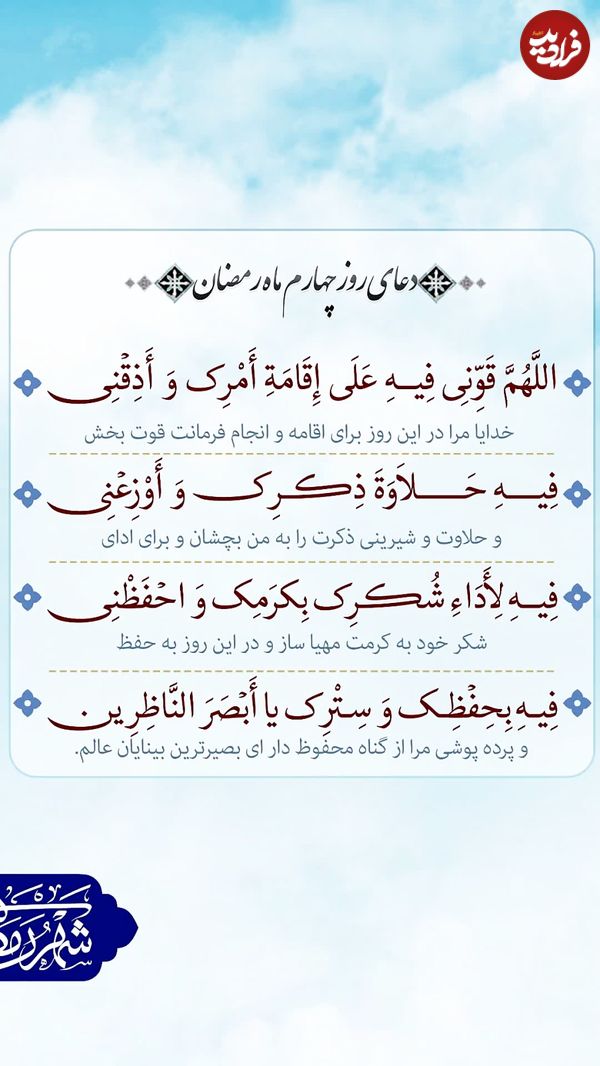 فرادید
اخبار
دعای روز چهارم ماه رمضان
اللَّهُمَّ قَوِّنِی فِیهِ عَلَی إِقَامَةِ أَمْرِک وَ أَذِقْنِی
خدایا مرا در این روز برای اقامه و انجام فرمانت قوت بخش
فِیهِ حَلاَوَةَ ذِکرِک وَ أَوْزِعْنِی
و حلاوت و شیرینی ذکرت را به من بچشان و برای ادای
فِیهِ لِأَدَاءِ شُکرِک بِکرَمِک وَ احْفَظْنِی
شکر خود به کرمت مهیا ساز و در این روز به حفظ
فِیهِ بِحِفْظِک وَ سِتْرِک یا أَبْصَرَ النَّاظِرِین
و پرده پوشی مرا از گناه محفوظ دار ای بصیرترین بینایان عالم.
شهر